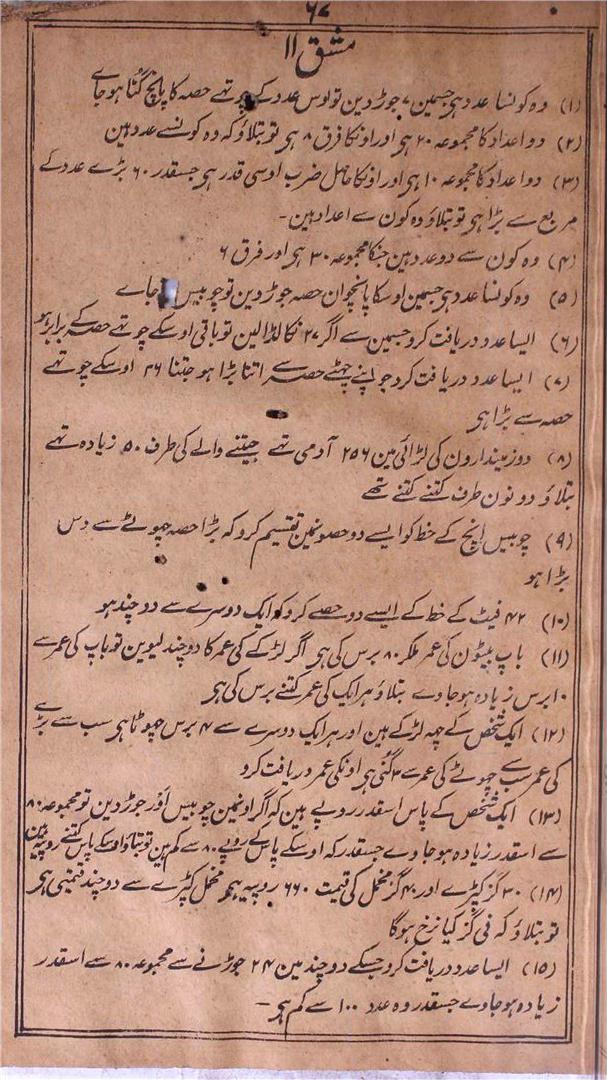 ۶۷
مشق ۱۱
(۱) وہ کونسا عدد ہی جسمین ۷ جوڑ دین تو اوس عدد کے چوتھے حصہ کا پانچ گُنا ہو جاے
(۲) دو اعداد کا مجموعہ ۲۰ ہی اور اونکا فرق ۸ ہی تو بتلاؤ کہ وہ کونسے عدد ہین
(۳) دو اعداد کا مجموعہ ۱۰ ہی اور اونکا حاصل ضرب اوسی قدر ہی جسقدر ۶۰ بڑے عدد کے
مربع سے بڑا ہی تو بتلاؤ وہ کون سے اعداد ہین -
(۴) وہ کون سے دو عدد ہین جنکا مجموعہ ۳۰ ہی اور فرق ۶
(۵) وہ کونسا عدد ہی جسمین اوسکا پانچوان حصہ جوڑ دین تو چوبیس جاے
(۶) ایسا عدد دریافت کرو جسمین سے اگر ۲۷ نکال ڈالین تو باقی اوسکے چوتھے حصہ کے برابر ہو
(۷) ایسا عدد دریافت کرو جو اپنے چھٹے حصہ سے اتنا بڑا ہو جتنا ۲۶ اوسکے چوتھے
حصہ سے بڑا ہی
(۸) دو زمیندارون کی لڑائی مین ۲۵۶ آدمی تھے جیتنے والے کی طرف ۵۰ زیادہ تھے
بتلاؤ دونون طرف کتنے کتنے تھے
(۹) چوبیس انچ کے خط کو ایسے دو حصونمین تقسیم کرو کہ بڑا حصہ چھوٹے سے دس
بڑا ہو
(۱۰) ۴۲ فیٹ کے خط کے ایسے دو حصے کرو کہ ایک دوسرے سے دو چند ہو
(۱۱) باپ بیٹون کی عمر ملکر ۸۰ برس کی ہی اگر لڑکے کی عمر کا دو چند لیوین تو باپ کی عمر سے
۱۰ برس زیادہ ہو جاوے بتلاؤ ہر ایک کی عمر کتنے برس کی ہی
(۱۲) ایک شخص کے چھہ لڑکے ہین اور ہر ایک دوسرے سے ۴ برس چھوٹا ہی سب سے بڑے
کی عمر سب سے چھوٹے کی عمر سے ۳ گُنی ہی اونکی عمر دریافت کرو
(۱۳) ایک شخص کے پاس اسقدر روپے ہین کہ اگر اونمین چوبیس اَور جوڑ دین تو مجموعہ ۸۰
سے اسقدر زیادہ ہو جاوے جسقدر کہ اوسکے پاس کے روپے ۸۰ سے کم ہین تو بتاؤ اوسکے پاس کتنے روپیہ ہین
(۱۴) ۳۰ گز کپڑے اور ۴۰ گز مخمل کی قیمت ۶۶۰ روپیہ ہی مخمل کپڑے سے دو چند قیمتی ہی
تو بتلاؤ کہ فی گز کیا نرخ ہوگا
(۱۵) ایسا عدد دریافت کرو جسکے دو چند مین ۲۴ جوڑنے سے مجموعہ ۸۰ سے اسقدر
زیادہ ہو جاوے جسقدر وہ عدد ۱۰۰ سے کم ہی -